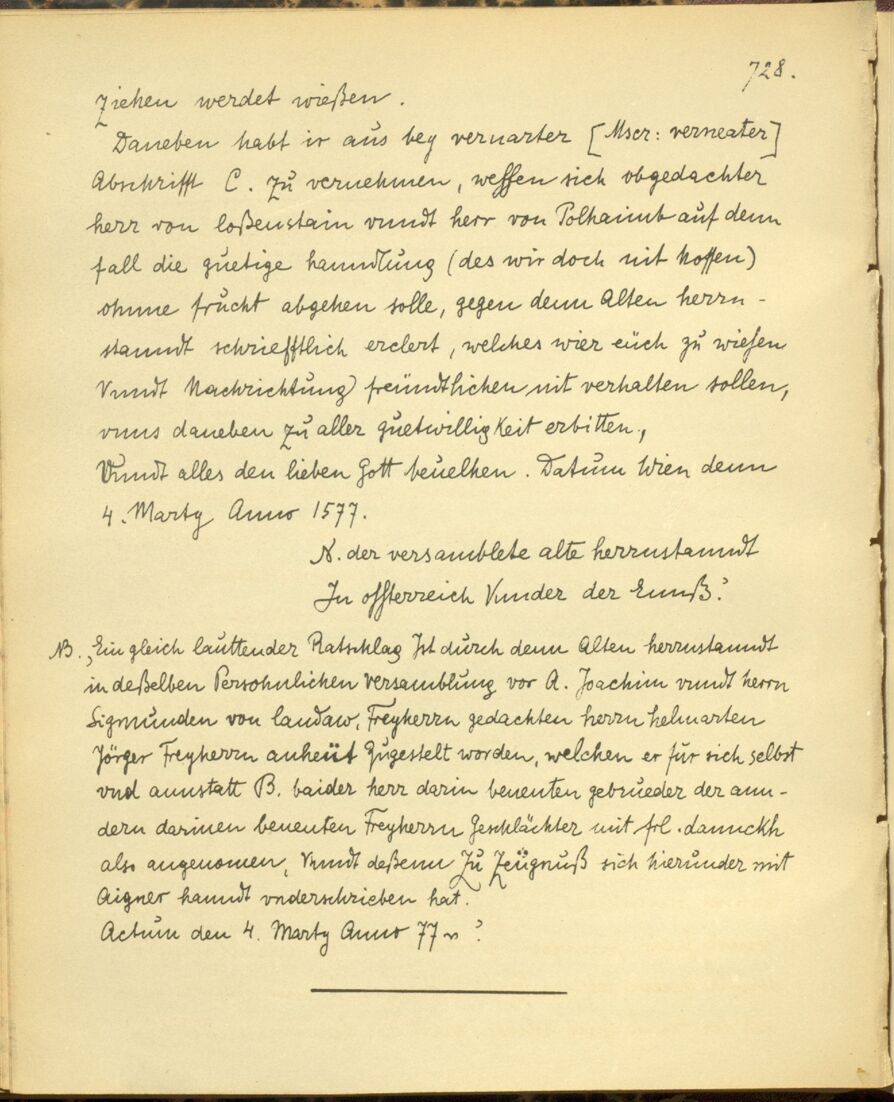 728.
ziehen werdet wießen.
Daneben habt ir aus bey veruarter [Mscr: verneater]
Abschrifft C. zu vernehmen, wessen sich obgedachter
herr von loßenstain vundt herr von Polhaimb auf denn
fall die guetige hanndlung (des wir doch nit hoffen)
ohnne frucht abgehen solle, gegen denn Alten herrn-
stanndt schriefftlich erclert, welches wier euch zu wießen
Vnndt Nachrichtung freündtlichen nit verhalten sollen,
vnns daneben zu aller guetwilligkeit erbitten,
Vnndt alles den lieben Gott beuelhen. Datum Wien denn
4. Marty Anno 1577.
N. der versamblete alte herrnstanndt
In össterreich Vnnder der Ennß.
NB. Ein gleich lauttender Ratschlag Ist durch denn Alten herrnstanndt
in deßelben Persohnlichen versamblung vor A. Joachim vnndt herrn
Sigmunden von landaw, Freyherrn gedachten herrn helmarten
Jörger Freyherrn anheüt Zugestelt worden, welchen er für sich selbst
vnd annstatt B. baider herr darin benenten gebrueder der ann-
dern darinen benenten Freyherrn Geschlächter mit frl. dannckh
also angenomen, Vnndt deßenn Zu Zeügnuß sich hierunder mit
Aigner hanndt vnderschrieben hat.
Actum den 4. Marty Anno 77